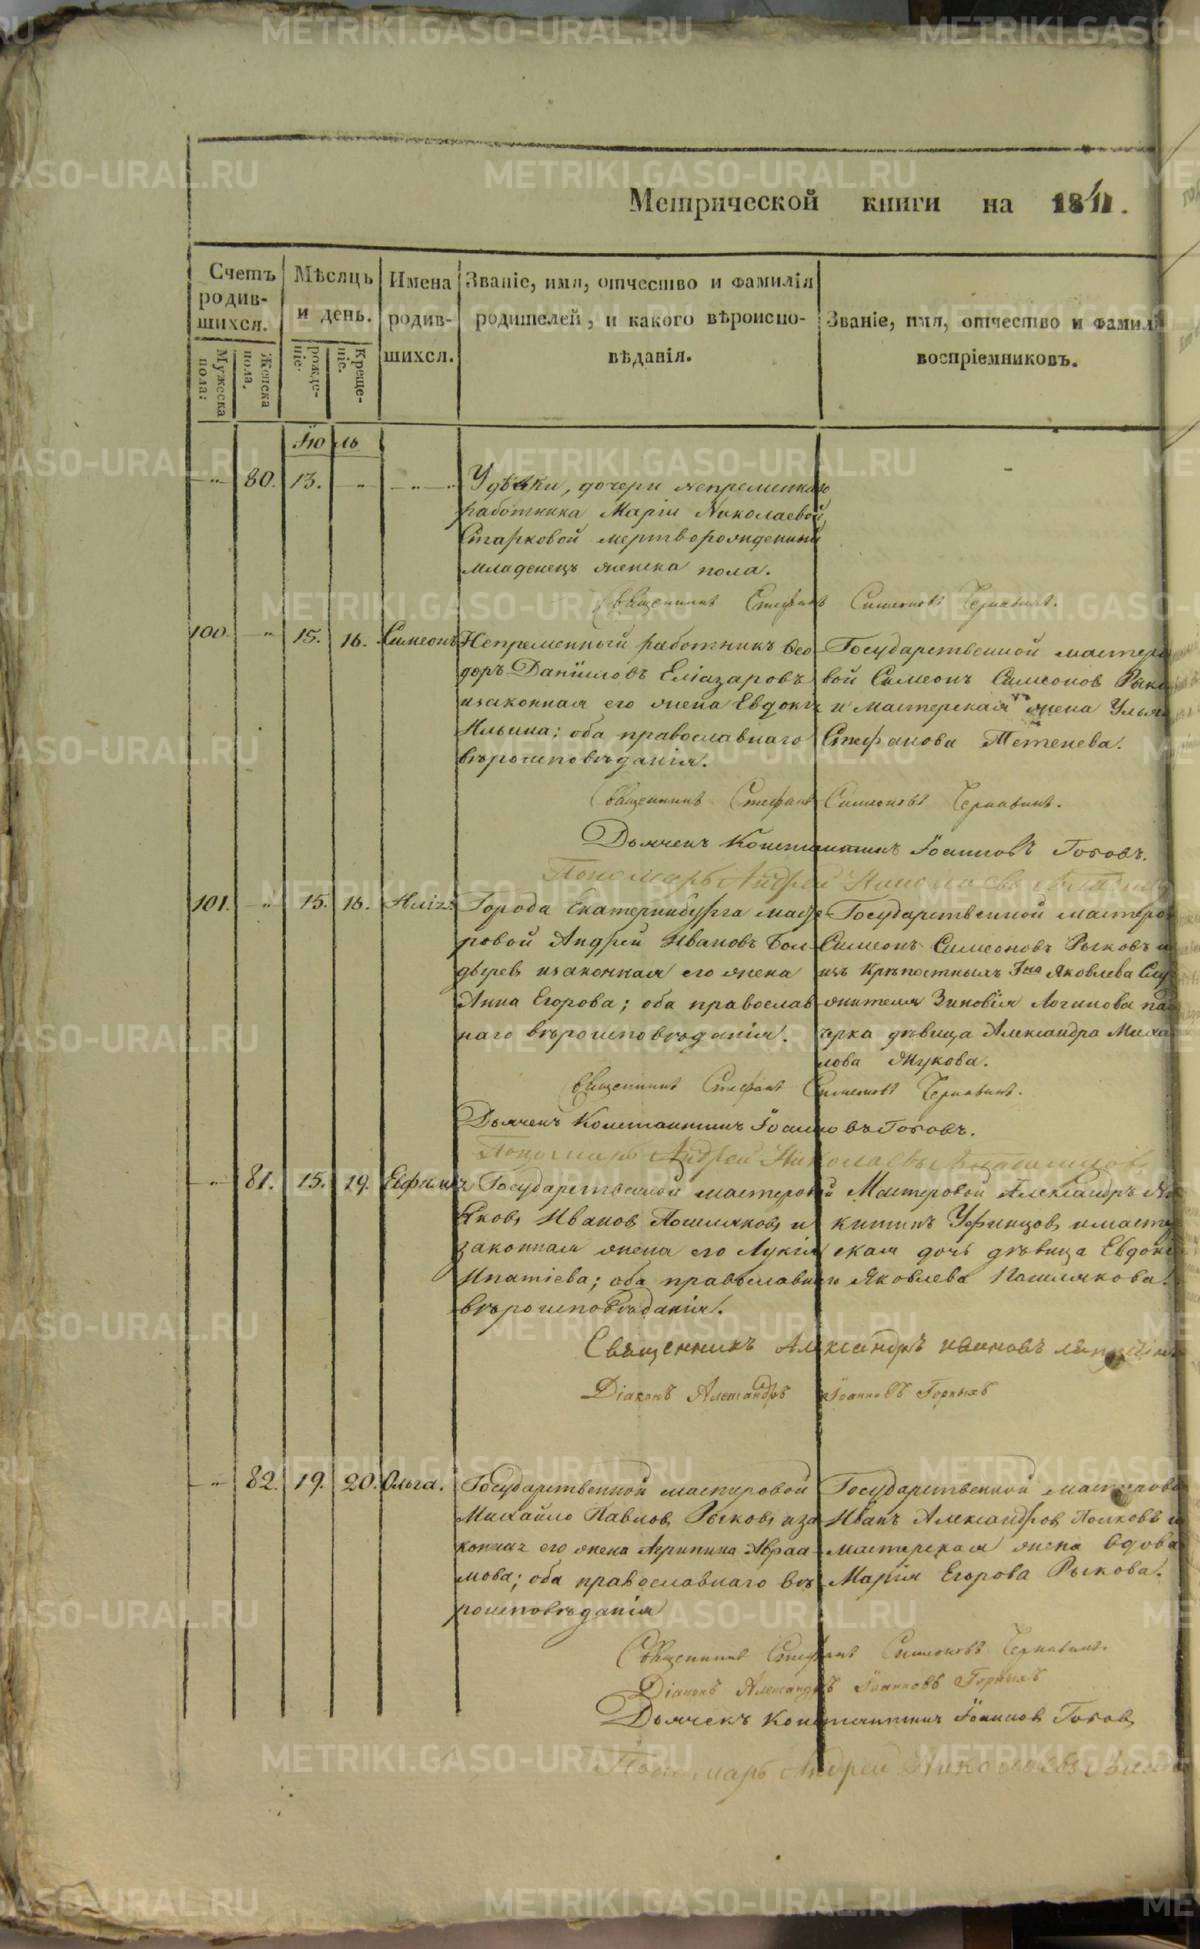 Метрической книги на 1841.
Счетъ родив-шихся.
Мужеска пола:
Женска пола.
Мѣсяцъ и день.
рожде-ніе.
Креще-ніе.
Имена родив-шихся.
Званіе, имя, отчество и фамилія
родителей, и какого вѣроиспо-
вѣданія.
Званіе, имя, отчество и фамилі
воспріемниковъ.
Іюль
80. 13. Удѣвки, дочери непременнаго
работника Маріи Николаевой
Старковой мертворожденный
младенецъ женска пола.
Священникъ Стефанъ Симеоновъ Чернавинъ.
100. 15. 16. Симеонъ Непременный работникъ Ѳео-
доръ Даніиловъ Еліазаровъ
и законная его жена Евдокія
Ильина; оба православнаго
вѣроисповѣданія.
Государственной мастеро
вой Симеонъ Симеоновъ Рыко
и мастерская жена Улья
Стефанова Тетенева.
Священникъ Стефанъ Симеоновъ Чернавинъ.
Дьячекъ Константинъ Іоанновъ Гоговъ.
Пономарь Андрей Николаевъ
101. 15. 16. Илія Города Екатеринбурга масте-
ровой Андрей Ивановъ Бол-
дыревъ и законная его жена
Анна Егорова; оба православ
наго вѣроисповѣданія.
Государственной мастеро
Симеонъ Симеоновъ Рыковъ и
изъ Крѣпостныхъ Гна Яковлева Слу
жителя Зиновія Логинова пад
ѣрка дѣвица Александра Миха
лова Жукова.
Священникъ Стефанъ Симеоновъ Чернавинъ.
Дьячекъ Константинъ Іоанновъ Гоговъ.
Пономарь Андрей Николаевъ
81. 15. 19. Государственной мастеровой
Яковъ Ивановъ Пошляковъ и
законная жена его Лукія
Ипатіева; оба православнаго
вѣроисповѣданія.
Мастеровой Александръ Ни
китинъ Уфинцовъ и масте
ская дочь дѣвица Евдокі
Яковлева Пашлякова.
Священникъ Александръ Ивановъ
Діаконъ Александръ Іоанновъ Горныхъ
82. 19. 20. Ольга. Государственной мастеровой
Михайло Павловъ Рыковъ и за
конная его жена Агрипина Авраа-
мова; оба православнаго вѣ
роисповѣданія
Государственной мастерово
Иванъ Александровъ Поповъ и
мастерская жена вдова
Марія Егорова Рыкова.
Священникъ Стефанъ Симеоновъ Чернавинъ.
Діаконъ Александръ Іоанновъ Горныхъ
Дьячекъ Константинъ Іоанновъ Гоговъ
Пономарь Андрей Николаевъ
METRIKI.GASO-URAL.RU